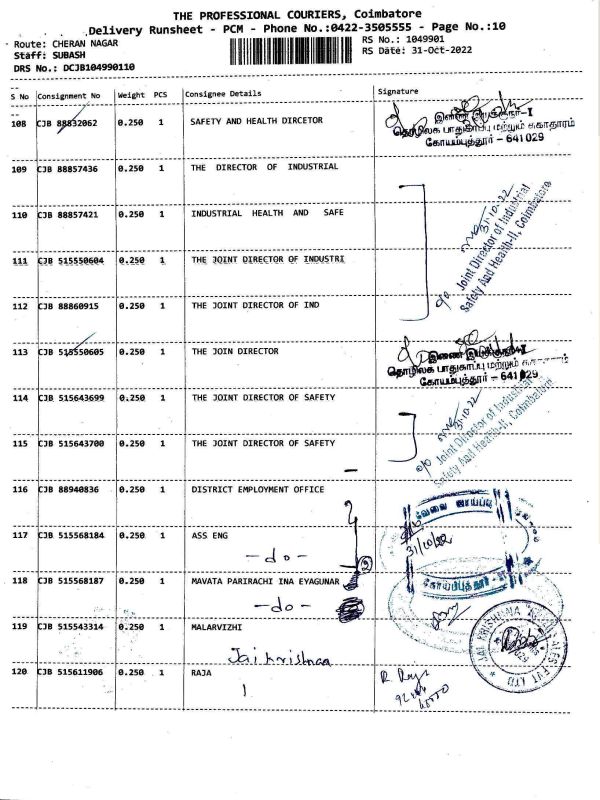 THE PROFESSIONAL COURIERS, Coimbatore
Delivery Runsheet - PCM - Phone No.:0422-3505555 - Page No.:10
Route: CHERAN NAGAR
RS No.: 1049901
Staff: SUBASH
RS Date: 31-Oct-2022
DRS No.: DCJB104990110
S No Consignment No Weight PCS Consignee Details Signature
108 CJB 88832062 0.250 1 SAFETY AND HEALTH DIRCETOR
தொழிலக பாதுகாப்பு மற்றும் சுகாதாரம்
கோயம்புத்தூர் - 641 029
109 CJB 88857436 0.250 1 THE DIRECTOR OF INDUSTRIAL
110 CJB 88857421 0.250 1 INDUSTRIAL HEALTH AND SAFE
31-10-22
Joint Director of Industrial
Safety And Health-II, Coimbatore
111 CJB 515550604 0.250 1 THE JOINT DIRECTOR OF INDUSTRI
112 CJB 88860915 0.250 1 THE JOINT DIRECTOR OF IND
113 CJB 515550605 0.250 1 THE JOIN DIRECTOR
தொழிலக பாதுகாப்பு மற்றும்
கோயம்புத்தூர் - 641 029
114 CJB 515643699 0.250 1 THE JOINT DIRECTOR OF SAFETY
Joint Director of Industrial
Safety And Health-II, Coimbatore
115 CJB 515643700 0.250 1 THE JOINT DIRECTOR OF SAFETY
116 CJB 88940836 0.250 1 DISTRICT EMPLOYMENT OFFICE
117 CJB 515568184 0.250 1 ASS ENG
-do-
2
31/10/22
118 CJB 515568187 0.250 1 MAVATA PARIRACHI INA EYAGUNAR
-do-
119 CJB 515543314 0.250 1 MALARVIZHI
Jai krishnaa
120 CJB 515611906 0.250 1 RAJA